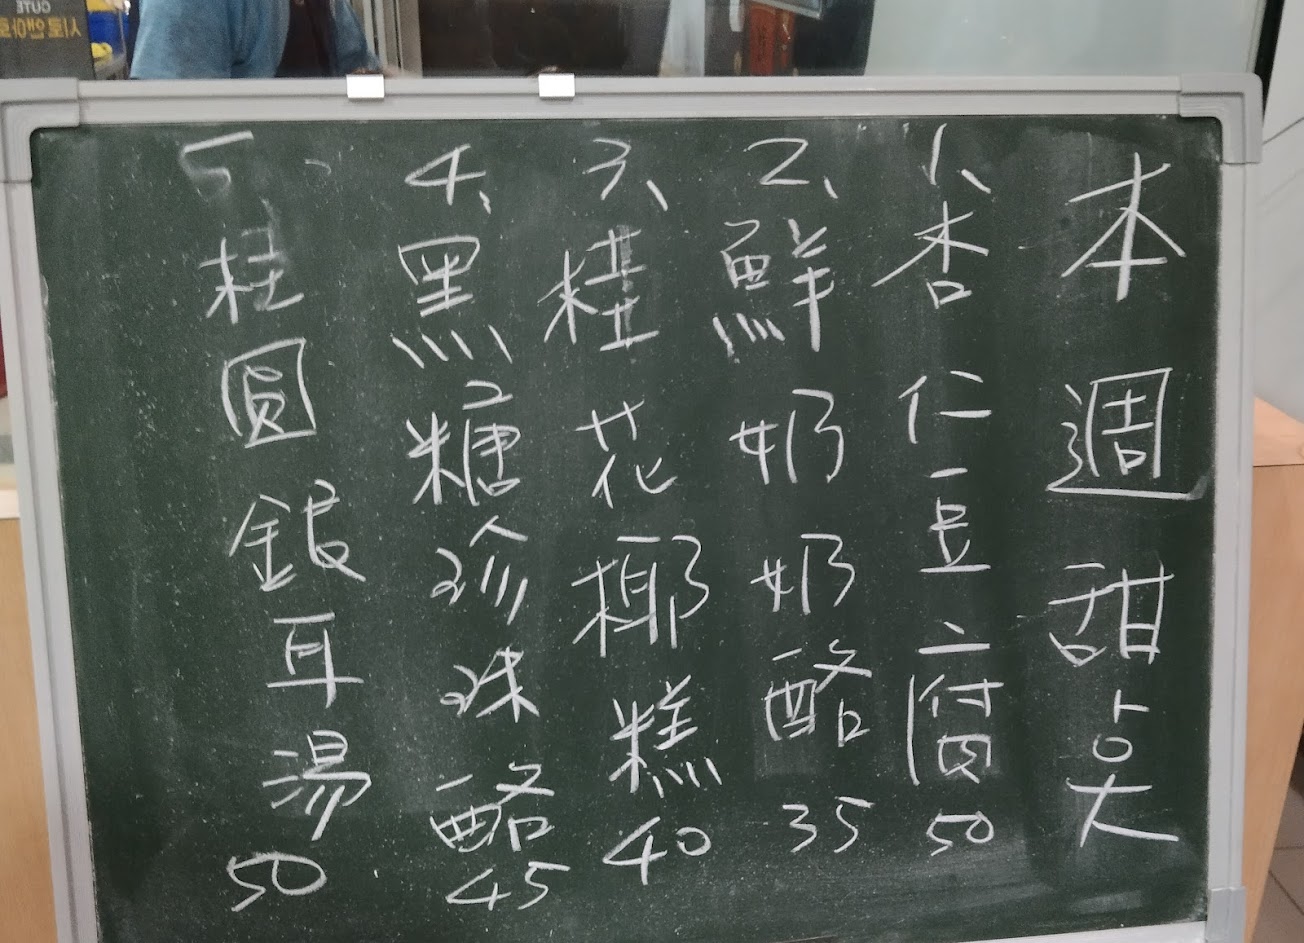 本週甜点
1、杏仁豆腐 50
2、鮮奶奶酪 35
3、桂花椰糕 40
4、黑糖珍珠酪 45
5、桂圓銀耳湯 50
CUTE